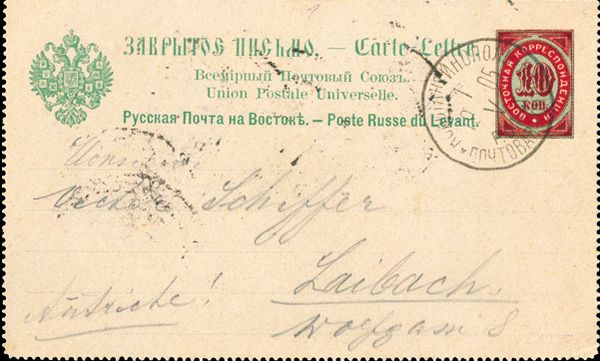 ЗАКРЫТОЕ ПИСЬМО. — Carte-Lettre
Всемірный Почтовый Союзъ.
Union Postale Universelle.
Русская Почта на Востокѣ. — Poste Russe du Levant.
ВОСТОЧНАЯ КОРРЕСПОНДЕНЦІЯ
10
КОП.
ПОЧТОВА
Monsieur
Schiffer
Laibach.
Autriche!